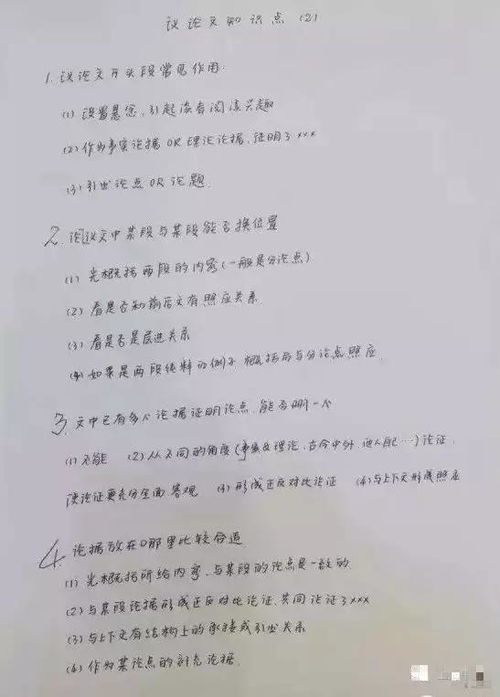 议论文知识点 (2)
1. 议论文开头段常见作用:
(1) 设置悬念,引起读者阅读兴趣
(2) 作为事实论据OR理论论据,证明了xxx
(3) 引出论点OR论题.
2. 论议文中某段与某段能否换位置
(1) 先概括两段的内容(一般是分论点)
(2) 看是否和前后文有照应关系
(3) 看是否是层进关系
(4) 如果是两段终料的例子 概括后与分论点照应.
3. 文中已有多个论据证明论点,能否删一个
(1) 不能 (2) 从不同的角度(事实及理论,古今中外,…)论证,
使论证更充分全面 客观 (3) 形成正反对比论证 (4) 与上下文形成照应
4. 论据放在哪里比较合适
(1) 先概括所给内容,与某段的论点是一致的.
(2) 与某段论据形成正反对比论证,共同论证了xxx
(3) 与上下文有结构上的承接或引出关系
(4) 作为某论点的补充论据.